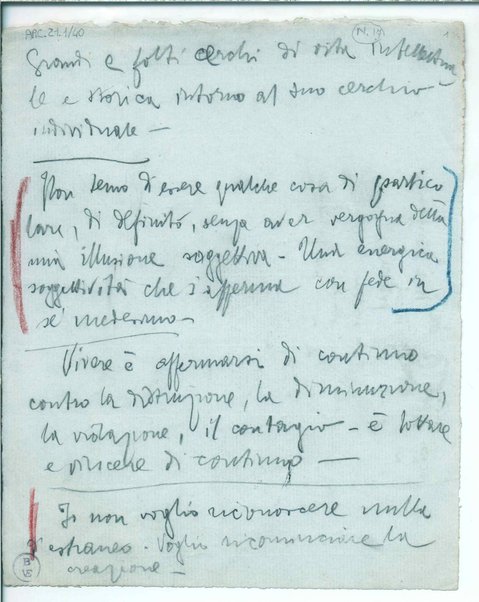 ARC.21.1/40
N. 19
1
Grandi e folti cerchi di vita intellettua
le e storica intorno al suo cerchio
individuale —
Non temo di essere qualche cosa di partico
lare, di definito, senza aver vergogna della
mia illusione soggettiva — Una energica
soggettività che s'afferma con fede in
sé medesimo —
Vivere è affermarsi di continuo
contro la distruzione, la diminuzione,
la violazione, il contagio — è lottare
e vincere di continuo —
Io non voglio riconoscere nulla
d'estraneo. Voglio ricominciare la
creazione —